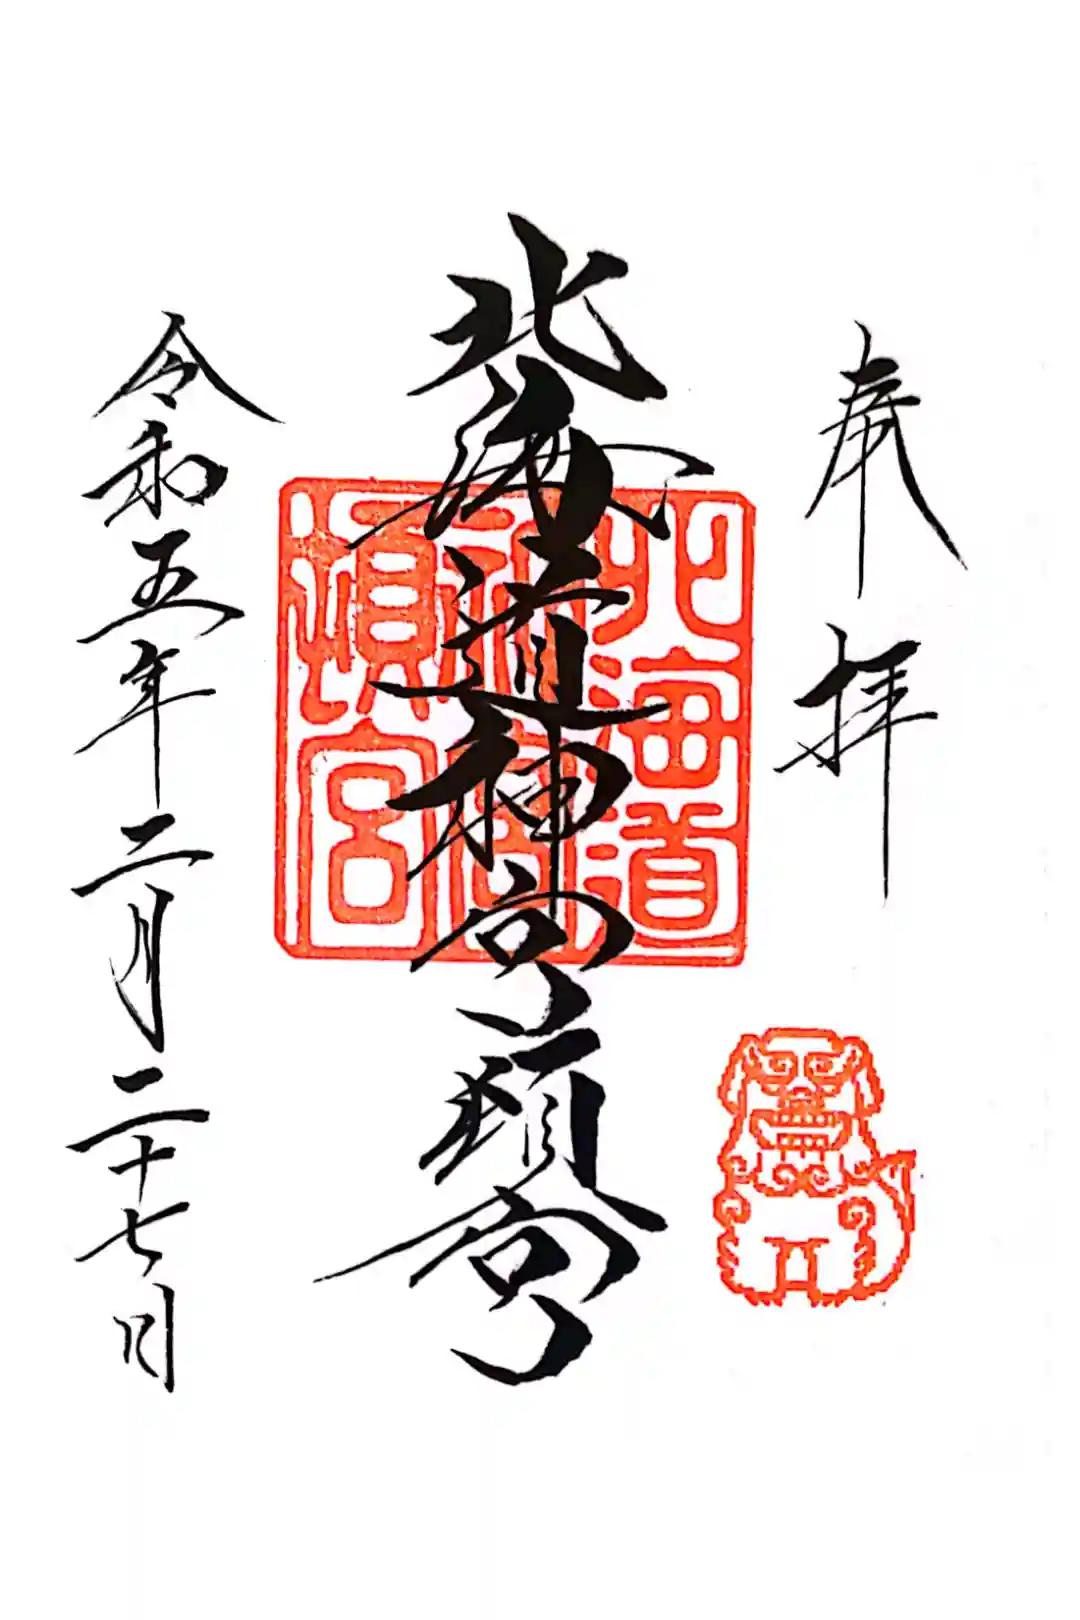 奉拝
北海道神宮頓宮
北海道
神宮
頓宮
令和五年二月二十七日